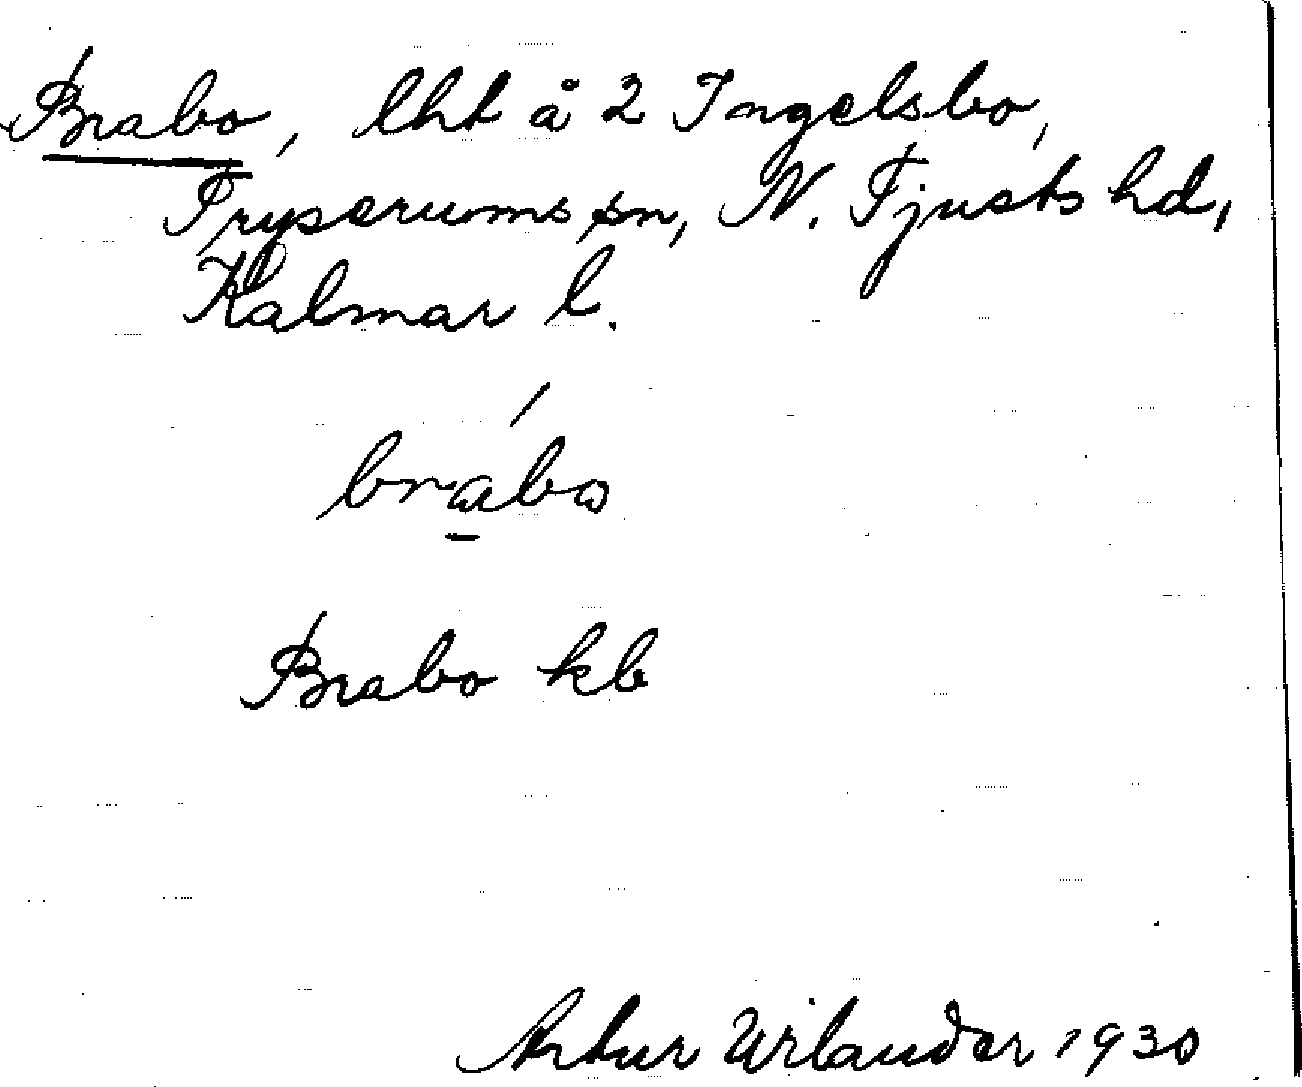 Brabo, lht å 2 Ingelsbo,
Tryserums sn, N. Tjusts hd,
Kalmar l.
brabω
Brabo kb
Artur Wilander 1930